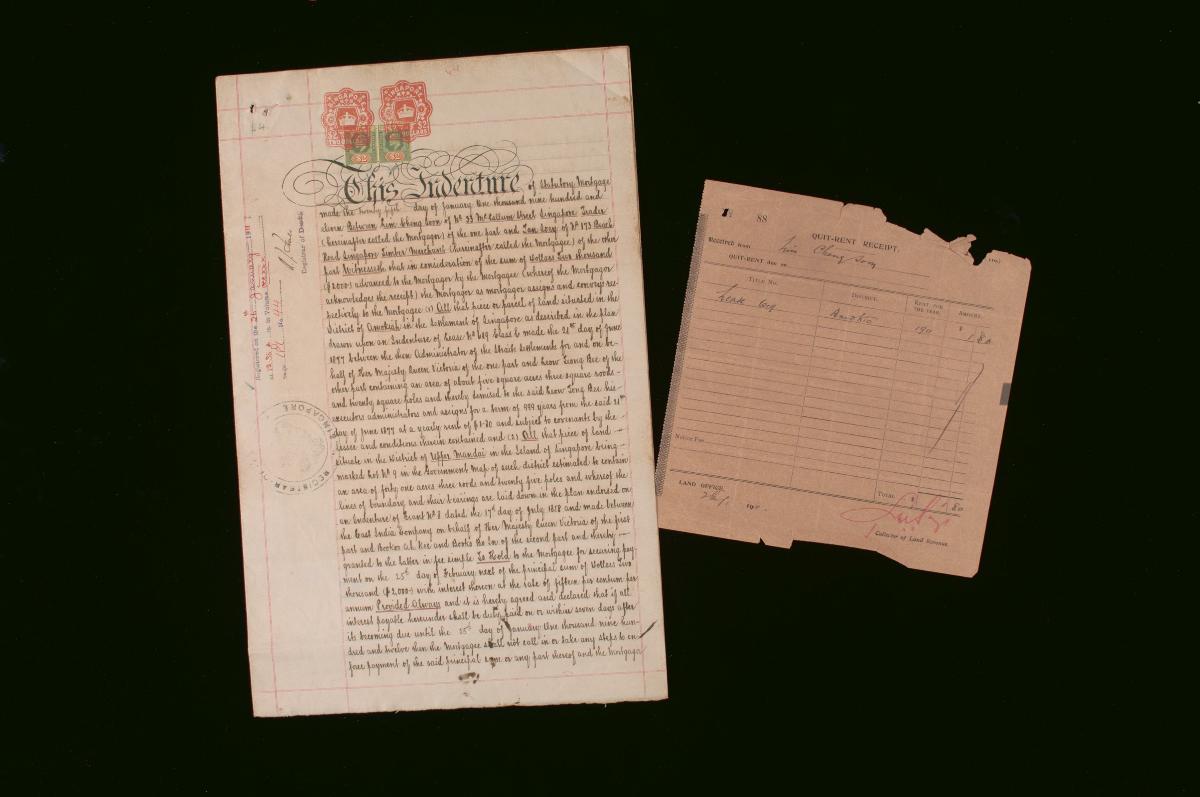 SINGAPORE
SINGAPORE
TWO DOLLARS
DOLLARS
$2 $2
This Indenture of Statutory Mortgage
made the twenty fifth day of January One thousand nine hundred and
eleven Between Lim Cheng Soon of No 33 McCallum Street Singapore Trader
(hereinafter called the Mortgagor) of the one part and Lam of No 173 Beach
Road Singapore Timber Merchant (hereinafter called the Mortgagee) of the other
part Witnesseth that in consideration of the sum of Dollars Two thousand
($2000) advanced to the Mortgagor by the Mortgagee (whereof the Mortgagor
acknowledges the receipt) the Mortgagor as mortgagor assigns and conveys res-
pectively to the Mortgagee (1) All that piece or parcel of land situated in the
District of Amokiah in the Settlement of Singapore as described in the plan
drawn upon an Indenture of Lease No 689 Class C made the 21st day of June
1877 between the then Administrator of the Straits Settlements for and on be-
half of Her Majesty Queen Victoria of the one part and Leow Tiong Bee of the
other part containing an area of about five square acres three square roods
and twenty square poles and thereby demised to the said Leow Tiong Bee his
executors administrators and assigns for a term of 999 years from the said 21st
day of June 1877 at a yearly rent of $1.80 and subject to covenants by the
lessee and conditions therein contained and (2) All that piece of land
situate in the District of Upper Mandai in the Island of Singapore being
marked Lot No 9 in the Government Map of such district estimated to contain
an area of forty one acres three roods and twenty five poles and whereof the
lines of boundary and their bearings are laid down in the plan endorsed on
an Indenture of Grant No 8 dated the 17th day of July 1858 and made between
the East India Company on behalf of Her Majesty Queen Victoria of the first
part and of the second part and thereby
granted to the latter in fee simple To Hold to the Mortgagee for securing pay-
ment on the 25th day of February next of the principal sum of Dollars Two
thousand ($2,000) with interest thereon at the rate of fifteen per centum per
annum Provided Always and it is hereby agreed and declared that if all
interest payable hereunder shall be duly paid on or within seven days after
its becoming due until the 25th day of January One thousand nine hun-
dred and twelve then the Mortgagee shall not call in or take any steps to en-
force payment of the said principal sum or any part thereof and the Mortgagor
Registered on the 26 January 1911
at in Volume
page No 44
Registrar of Deeds
REGISTRAR OF SINGAPORE
88
QUIT-RENT RECEIPT.
Received from Lim Cheng Soon
QUIT-RENT due on
TITLE No. DISTRICT. RENT FOR THE YEAR. AMOUNT.
Lease 689 Amokio 190 $ 1.80
Notice Fee
TOTAL $ 1.80
LAND OFFICE,
190
Collector of Land Revenue.